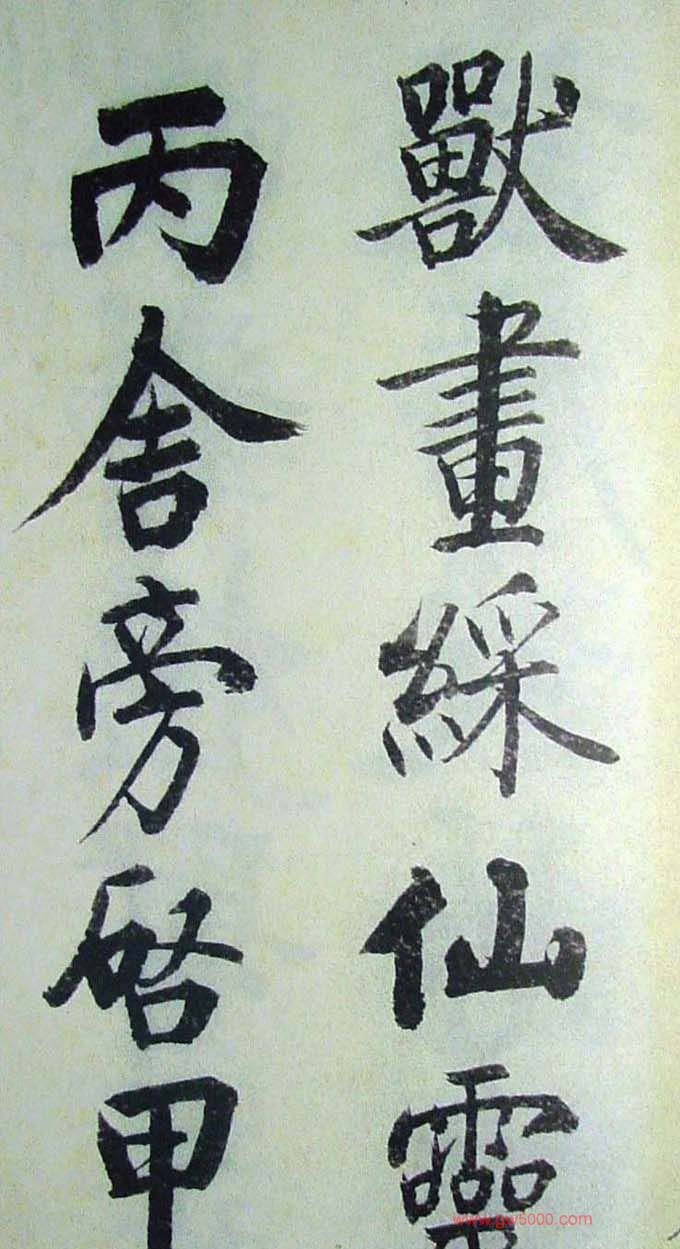 獸畫綵仙靈
丙舍旁啓甲
www.gw5000.com